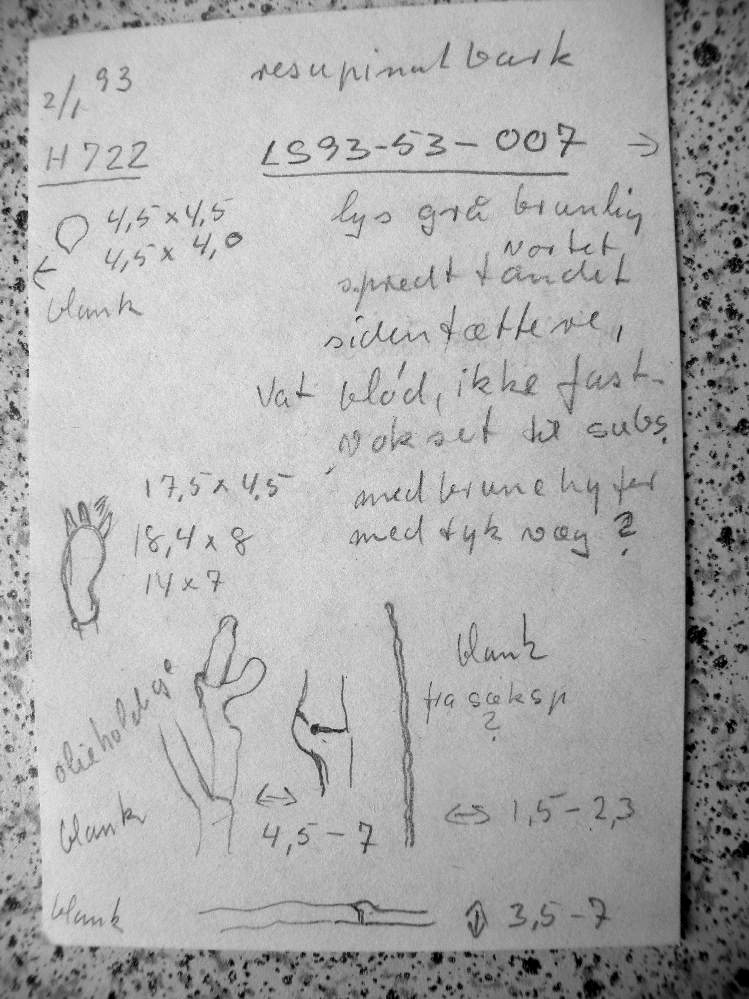 2/1 93
resupinat bark
H 722
LS93-53-007 →
4,5 × 4,5
4,5 × 4,0
blank
lys grå brunlig
vortet
spredt tandet
siden tættere,
vat blød, ikke fast-
vokset til subs.
med brune hyfer
med tyk væg ?
17,5 × 4,5
18,4 × 8
14 × 7
olieholdig
blank
4,5 – 7
blank
fra sæksp
?
1,5 – 2,3
blank
3,5 – 7